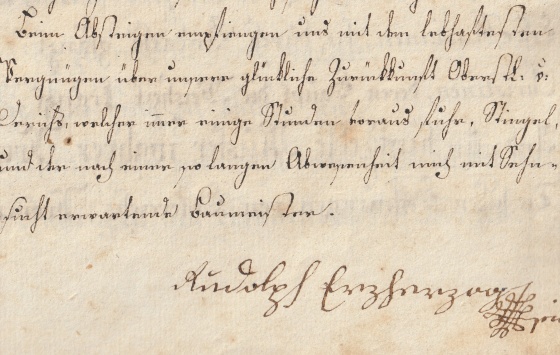 Beim Absteigen empfiengen uns mit den lebhaftesten
Vergnügen über unsere glückliche Zurückkunft Oberstl: v:
welcher immer einige Stunden voraus fuhr, Stingel,
und der nach einer so langen Abwesenheit mich mit Sehn-
sucht erwartende Baumeister.
Rudolph Erzherzog